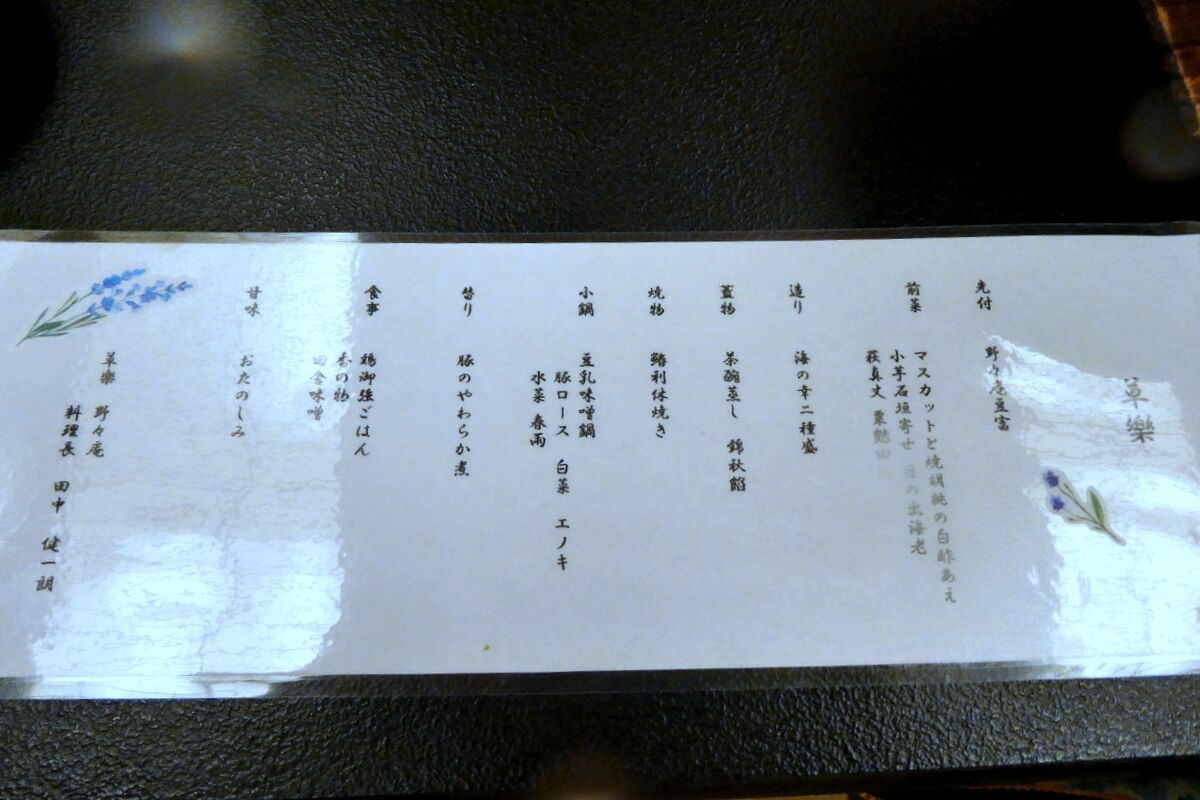 草樂
先付
野々庵豆富
前菜
マスカットと焼胡桃の白酢あえ
小芋石垣寄せ 日の出海老
萩真丈 粟麩田
造り
海の幸二種盛
蓋物
茶碗蒸し 錦秋餡
焼物
鰆利休焼き
小鍋
豆乳味噌鍋
豚ロース 白菜 エノキ
水菜 春雨
替り
豚のやわらか煮
食事
鶏御強ごはん
香の物
田舎味噌
甘味
おたのしみ
草樂 野々庵
料理長 田中 健一朗